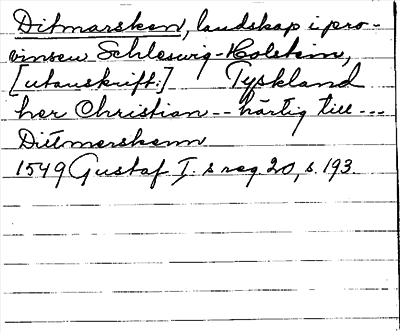 Ditmarsken, landskap i pro-
vinsen Schleswig-Holstein,
[utanskrift:] Tyskland
her Christian -- härtig till ---
Ditmerskenn
1549 Gustaf I. s reg. 20, s. 193.